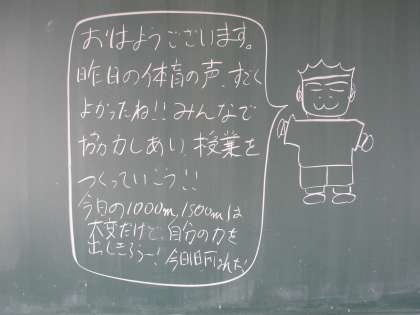 おはようございます。
昨日の体育の声、すごく
よかったね!!みんなで
協力しあい、授業を
つくっていこう!!
今日の1000m,1500mは
不安だけど、自分の力を
出しきろうー!今日も